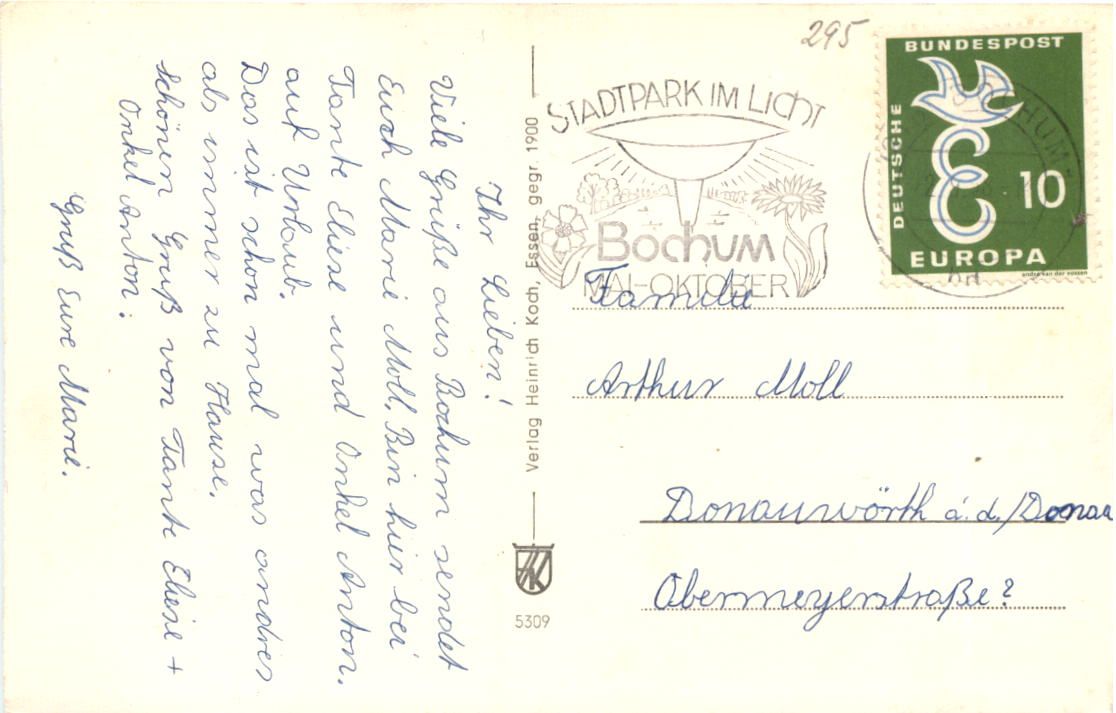 Ihr Lieben!
Viele Grüße aus Bochum sendet
Euch Marie Moll. Bin hier bei
Tante Eliese und Onkel Anton.
auf Urlaub.
Das ist schon mal was andres
als immer zu Hause.
Schönen Gruß von Tante Eliese +
Onkel Anton.
Gruß Eure Marie.
Verlag Heinrich Koch, Essen, gegr. 1900
HK
5309
295
STADTPARK IM LICHT
BOCHUM
MAI-OKTOBER
DEUTSCHE
BUNDESPOST
10
EUROPA
andré van der vossen
BOCHUM
Familie
Arthur Moll
Donauwörth a. d./Donau
Obermeyerstraße?